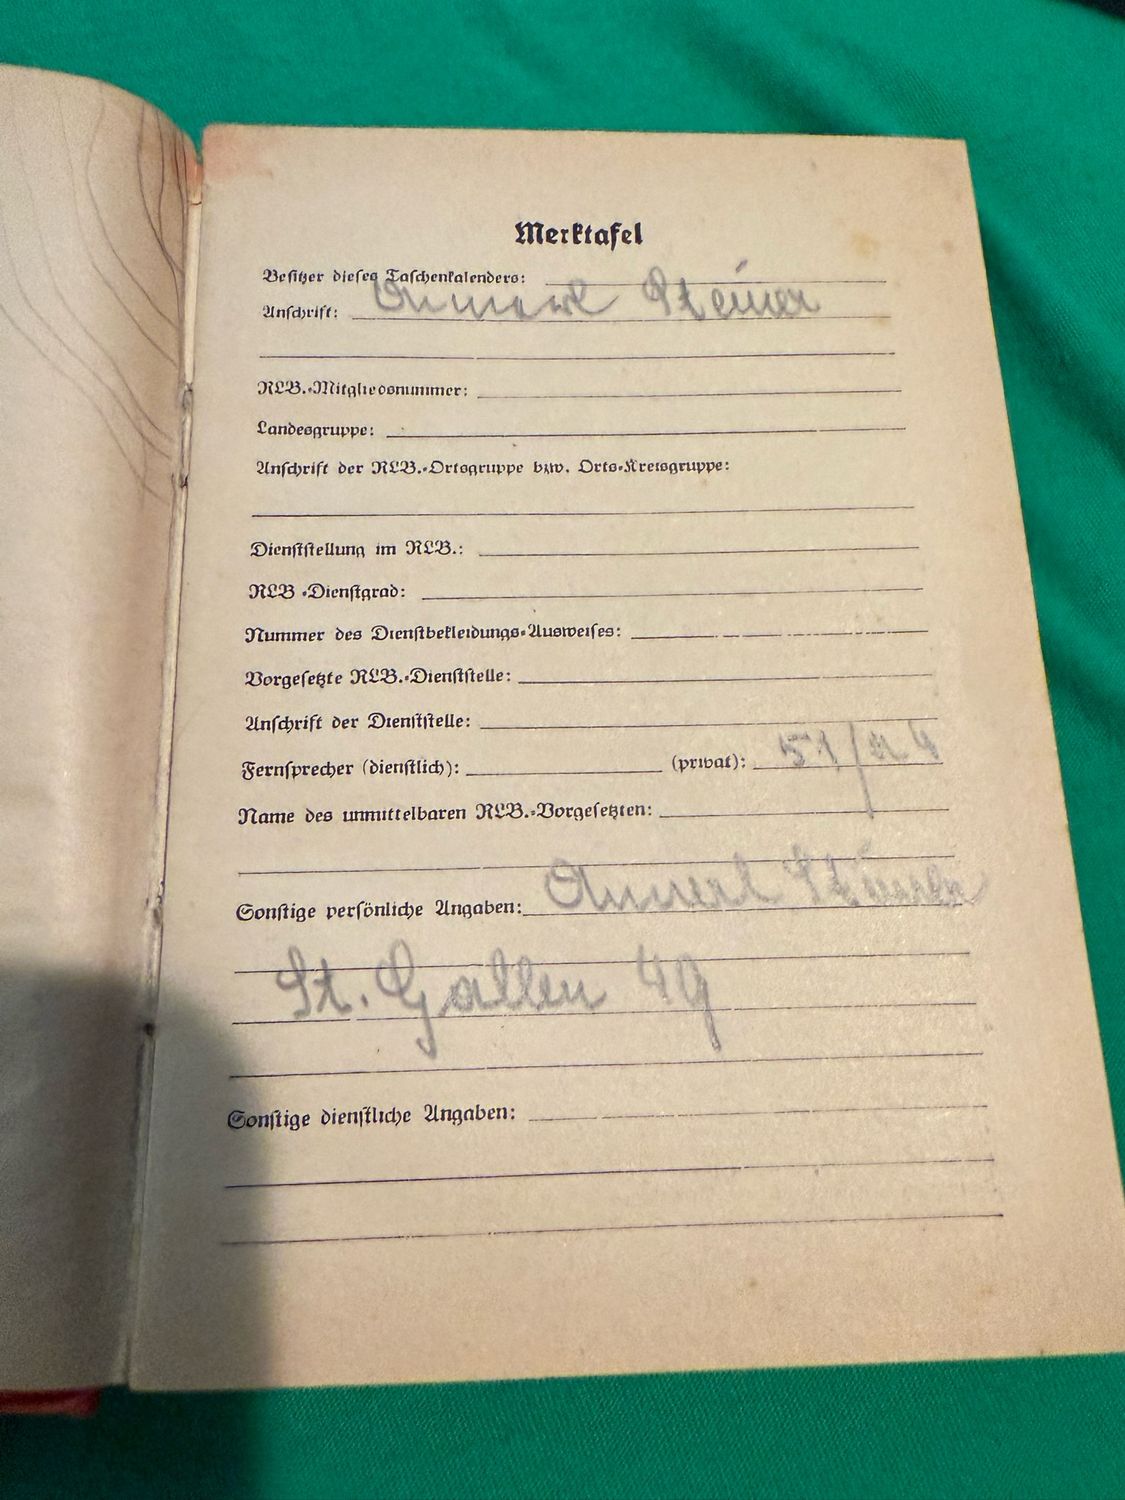 Merktafel
Besitzer dieses Taschenkalenders:
Annerl Steiner
Anschrift:
RLB.-Mitgliedsnummer:
Landesgruppe:
Anschrift der RLB.-Ortsgruppe bzw. Orts-Kreisgruppe:
Dienststellung im RLB.:
RLB-Dienstgrad:
Nummer des Dienstbekleidungs-Ausweises:
Vorgesetzte RLB.-Dienststelle:
Anschrift der Dienststelle:
Fernsprecher (dienstlich): (privat):
Name des unmittelbaren RLB.-Vorgesetzten:
Sonstige persönliche Angaben: Annerl Steiner
St. Gallen 49
Sonstige dienstliche Angaben: